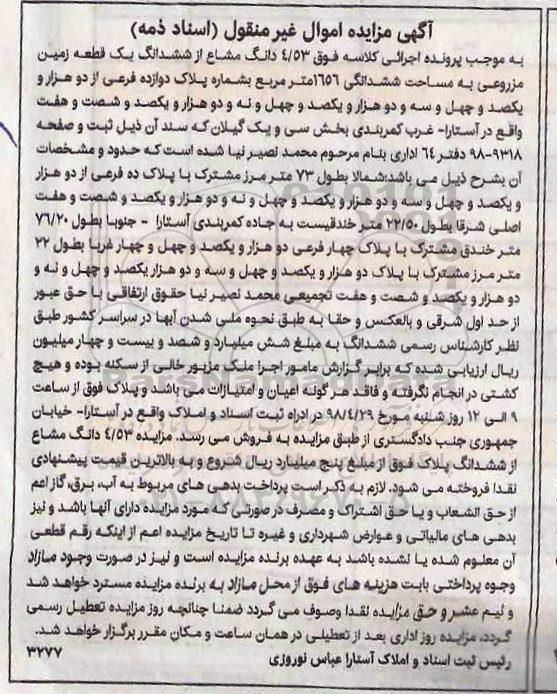 آگهی مزایده اموال غیر منقول (اسناد ذمه)
به موجب پرونده اجرائی کلاسه فوق ۴/۵۳ دانگ مشاع از ششدانگ یک قطعه زمین
مزروعی به مساحت ششدانگی ۱۶۵۶متر مربع بشماره پلاک دوازده فرعی از دو هزار و
یکصد و چهل و سه و دو هزار و یکصد و چهل و نه و دو هزار و یکصد و شصت و هفت
واقع در آستارا- غرب کمربندی بخش سی و یک گیلان که سند آن ذیل ثبت و صفحه
۹۳۱۸-۹۸ دفتر ۶۴ اداری بنام مرحوم محمد نصیر نیا شده است که حدود و مشخصات
آن بشرح ذیل می باشد:شمالا بطول ۷۳ متر مرز مشترک با پلاک ده فرعی از دو هزار
و یکصد و چهل و سه و دو هزار و یکصد و چهل و نه و دو هزار و یکصد و شصت و هفت
اصلی شرقا بطول ۲۲/۵۰ متر خندقیست به جاده کمربندی آستارا - جنوبا بطول ۷۶/۲۰
متر خندق مشترک با پلاک چهار فرعی دو هزار و یکصد و چهل و چهار غربا بطول ۲۲
متر مرز مشترک با پلاک دو هزار و یکصد و چهل و سه و دو هزار یکصد و چهل و نه و
دو هزار و یکصد و شصت و هفت تجمیعی محمد نصیر نیا حقوق ارتفاقی با حق عبور
از حد اول شرقی و بالعکس و حقا به طبق نحوه ملی شدن آبها در سراسر کشور طبق
نظر کارشناس رسمی ششدانگ به مبلغ شش میلیارد و شصد و بیست و چهار میلیون
ریال ارزیابی شده که برابر گزارش مامور اجرا ملک مزبور خالی از سکنه بوده و هیچ
کشتی در انجام نگرفته و فاقد هر گونه اعیان و امتیازات می باشد و پلاک فوق از ساعت
۹ الی ۱۲ روز شنبه مورخ ۹۸/۴/۲۹ در ادراه ثبت اسناد و املاک واقع در آستارا- خیابان
جمهوری جنب دادگستری از طبق مزایده به فروش می رسد. مزایده ۴/۵۳ دانگ مشاع
از ششدانگ پلاک فوق از مبلغ پنج میلیارد ریال شروع و به بالاترین قیمت پیشنهادی
نقدا فروخته می شود. لازم به ذکر است پرداخت بدهی های مربوط به آب، برق، گاز اعم
از حق انشعاب و یا حق اشتراک و مصرف در صورتی که مورد مزایده دارای آنها باشد و نیز
بدهی های مالیاتی و عوارض شهرداری و غیره تا تاریخ مزایده اعم از اینکه رقم قطعی
آن معلوم شده یا نشده باشد به عهده برنده مزایده است و نیز در صورت وجود مازاد
وجوه پرداختی بابت هزینه های فوق از محل مازاد به برنده مزایده مسترد خواهد شد
و نیم عشر و حق مزایده نقدا وصوف می گردد ضمنا چنانچه روز مزایده تعطیل رسمی
گردد، مزایده روز اداری بعد از تعطیلی در همان ساعت و مکان مقرر برگزار خواهد شد.
رئیس ثبت اسناد و املاک آستارا عباس نوروزی ۳۲۷۷